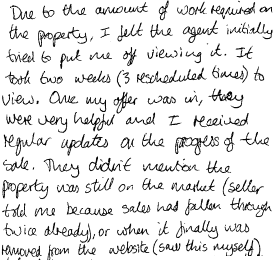 Due to the amount of work required on
the property, I felt the agent initially
tried to put me off viewing it. It
took two weeks (3 rescheduled times) to
view. Once my offer was in, they
were very helpful and I received
regular updates on the progress of the
sale. They didn't mention the
property was still on the market (seller
told me because sales had fallen through
twice already), or when it finally was
removed from the website (saw this myself)